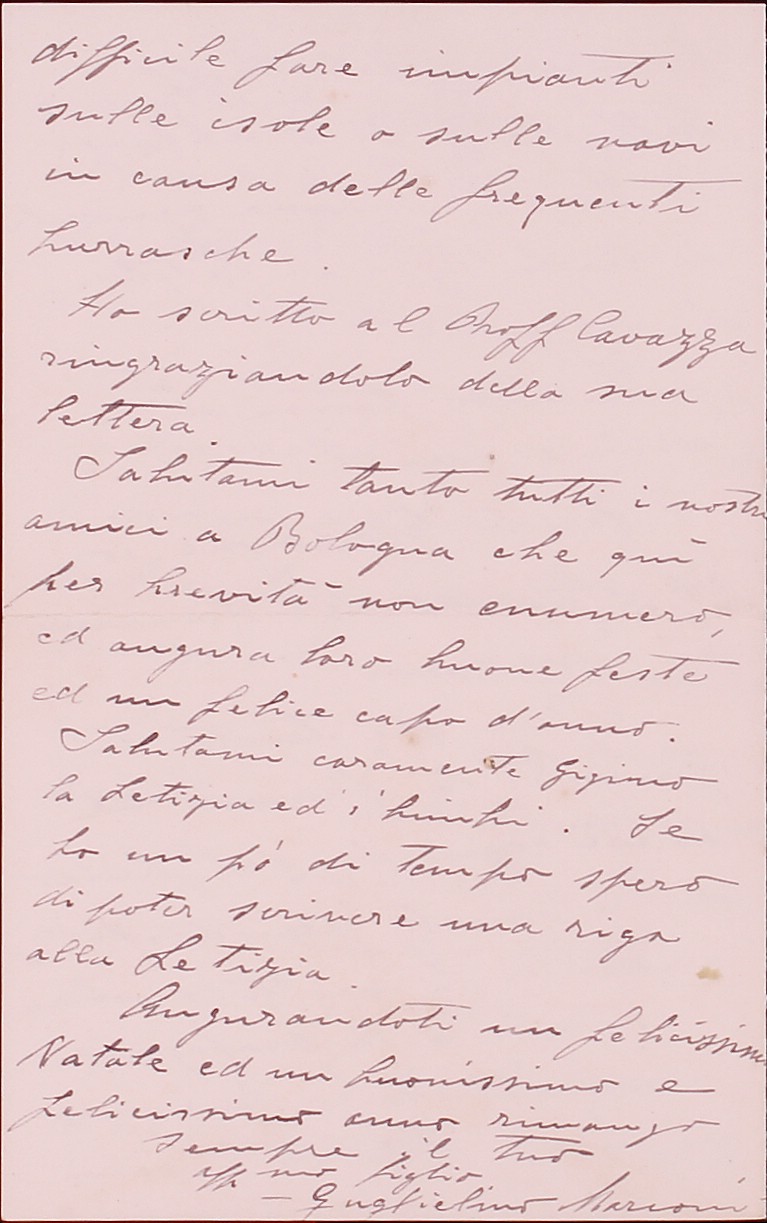 difficile fare impianti
sulle isole o sulle navi
in causa delle frequenti
burrasche.
Ho scritto al Proff Cavazza
ringraziandolo della sua
lettera.
Salutami tanto tutti i nostri
amici a Bologna che quì
per brevità non enumero,
ed augura loro buone feste
ed un felice capo d'anno.
Salutami caramente Gigino
la Letizia ed i bimbi. Se
ho un pó di tempo spero
di poter scrivere una riga
alla Letizia.
Augurandoti un felicissimo
Natale ed un buonissimo e
felicissimo anno rimango
sempre il tuo
affmo figlio
— Guglielmo Marconi